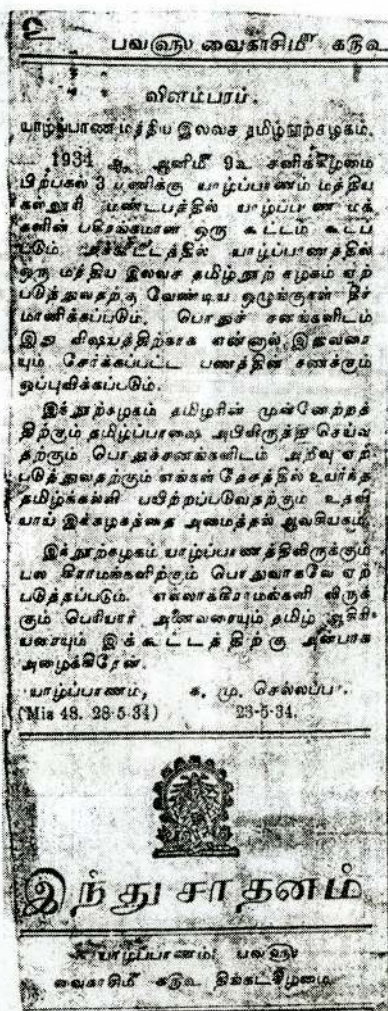 பவ௵ வைகாசிமீ கடுஉ
விளம்பரம்.
யாழ்ப்பாண மத்திய இலவச தமிழ்நூற்சழகம்.
1934 ஆ ஆனிமீ 9உ சனிக்கிழமை
பிற்பகல் 3 மணிக்கு யாழ்ப்பாணம் மத்திய
கல்லூரி மண்டபத்தில் யாழ்ப்பாண மக்
களின் பகிரங்கமான ஒரு கூட்டம் கூடப்
படும். இக்கூட்டத்தில் யாழ்ப்பாணத்தில்
ஒரு மத்திய இலவச தமிழ்நூற் சழகம் ஏற்
படுத்துவதற்கு வேண்டிய ஒழுங்குகள் தீர்
மாணிக்கப்படும். பொதுச் சனங்களிடம்
இது விஷயத்திற்காக என்னால் இதுவரை
யும் சேர்க்கப்பட்ட பணத்தின் கணக்கும்
ஒப்புவிக்கப்படும்.
இந்நூற்சழகம் தமிழரின் முன்னேற்றத்
திற்கும் தமிழ்ப்பாஷை அபிவிருத்தி செய்வ
தற்கும் பொதுச்சனங்களிடம் அறிவு ஏற்
படுத்துவதற்கும் எங்கள் தேசத்தில் உயர்ந்த
தமிழ்க்கல்வி பயிற்றப்படுவதற்கும் உதவி
யாய் இக்கழகத்தை அமைத்தல் ஆவசியகம்.
இந்நூற்சழகம் யாழ்ப்பாணத்திலிருக்கும்
பல கிராமங்களிற்கும் பொதுவாகவே ஏற்
படுத்தப்படும். எல்லாக்கிராமங்களி லிருக்
கும் பெரியார் அனைவரையும் தமிழ் ஆசிரி
யரையும் இக்கூட்டத்திற்கு அன்பாக
அழைக்கிறேன்.
யாழ்ப்பாணம், க. மு. செல்லப்பா.
(Mis 48. 28-5-34) 23-5-34.
இந்து சாதனம்
யாழ்ப்பாணம் பவ௵
வைகாசிமீ கடுஉ திங்கட்கிழமை